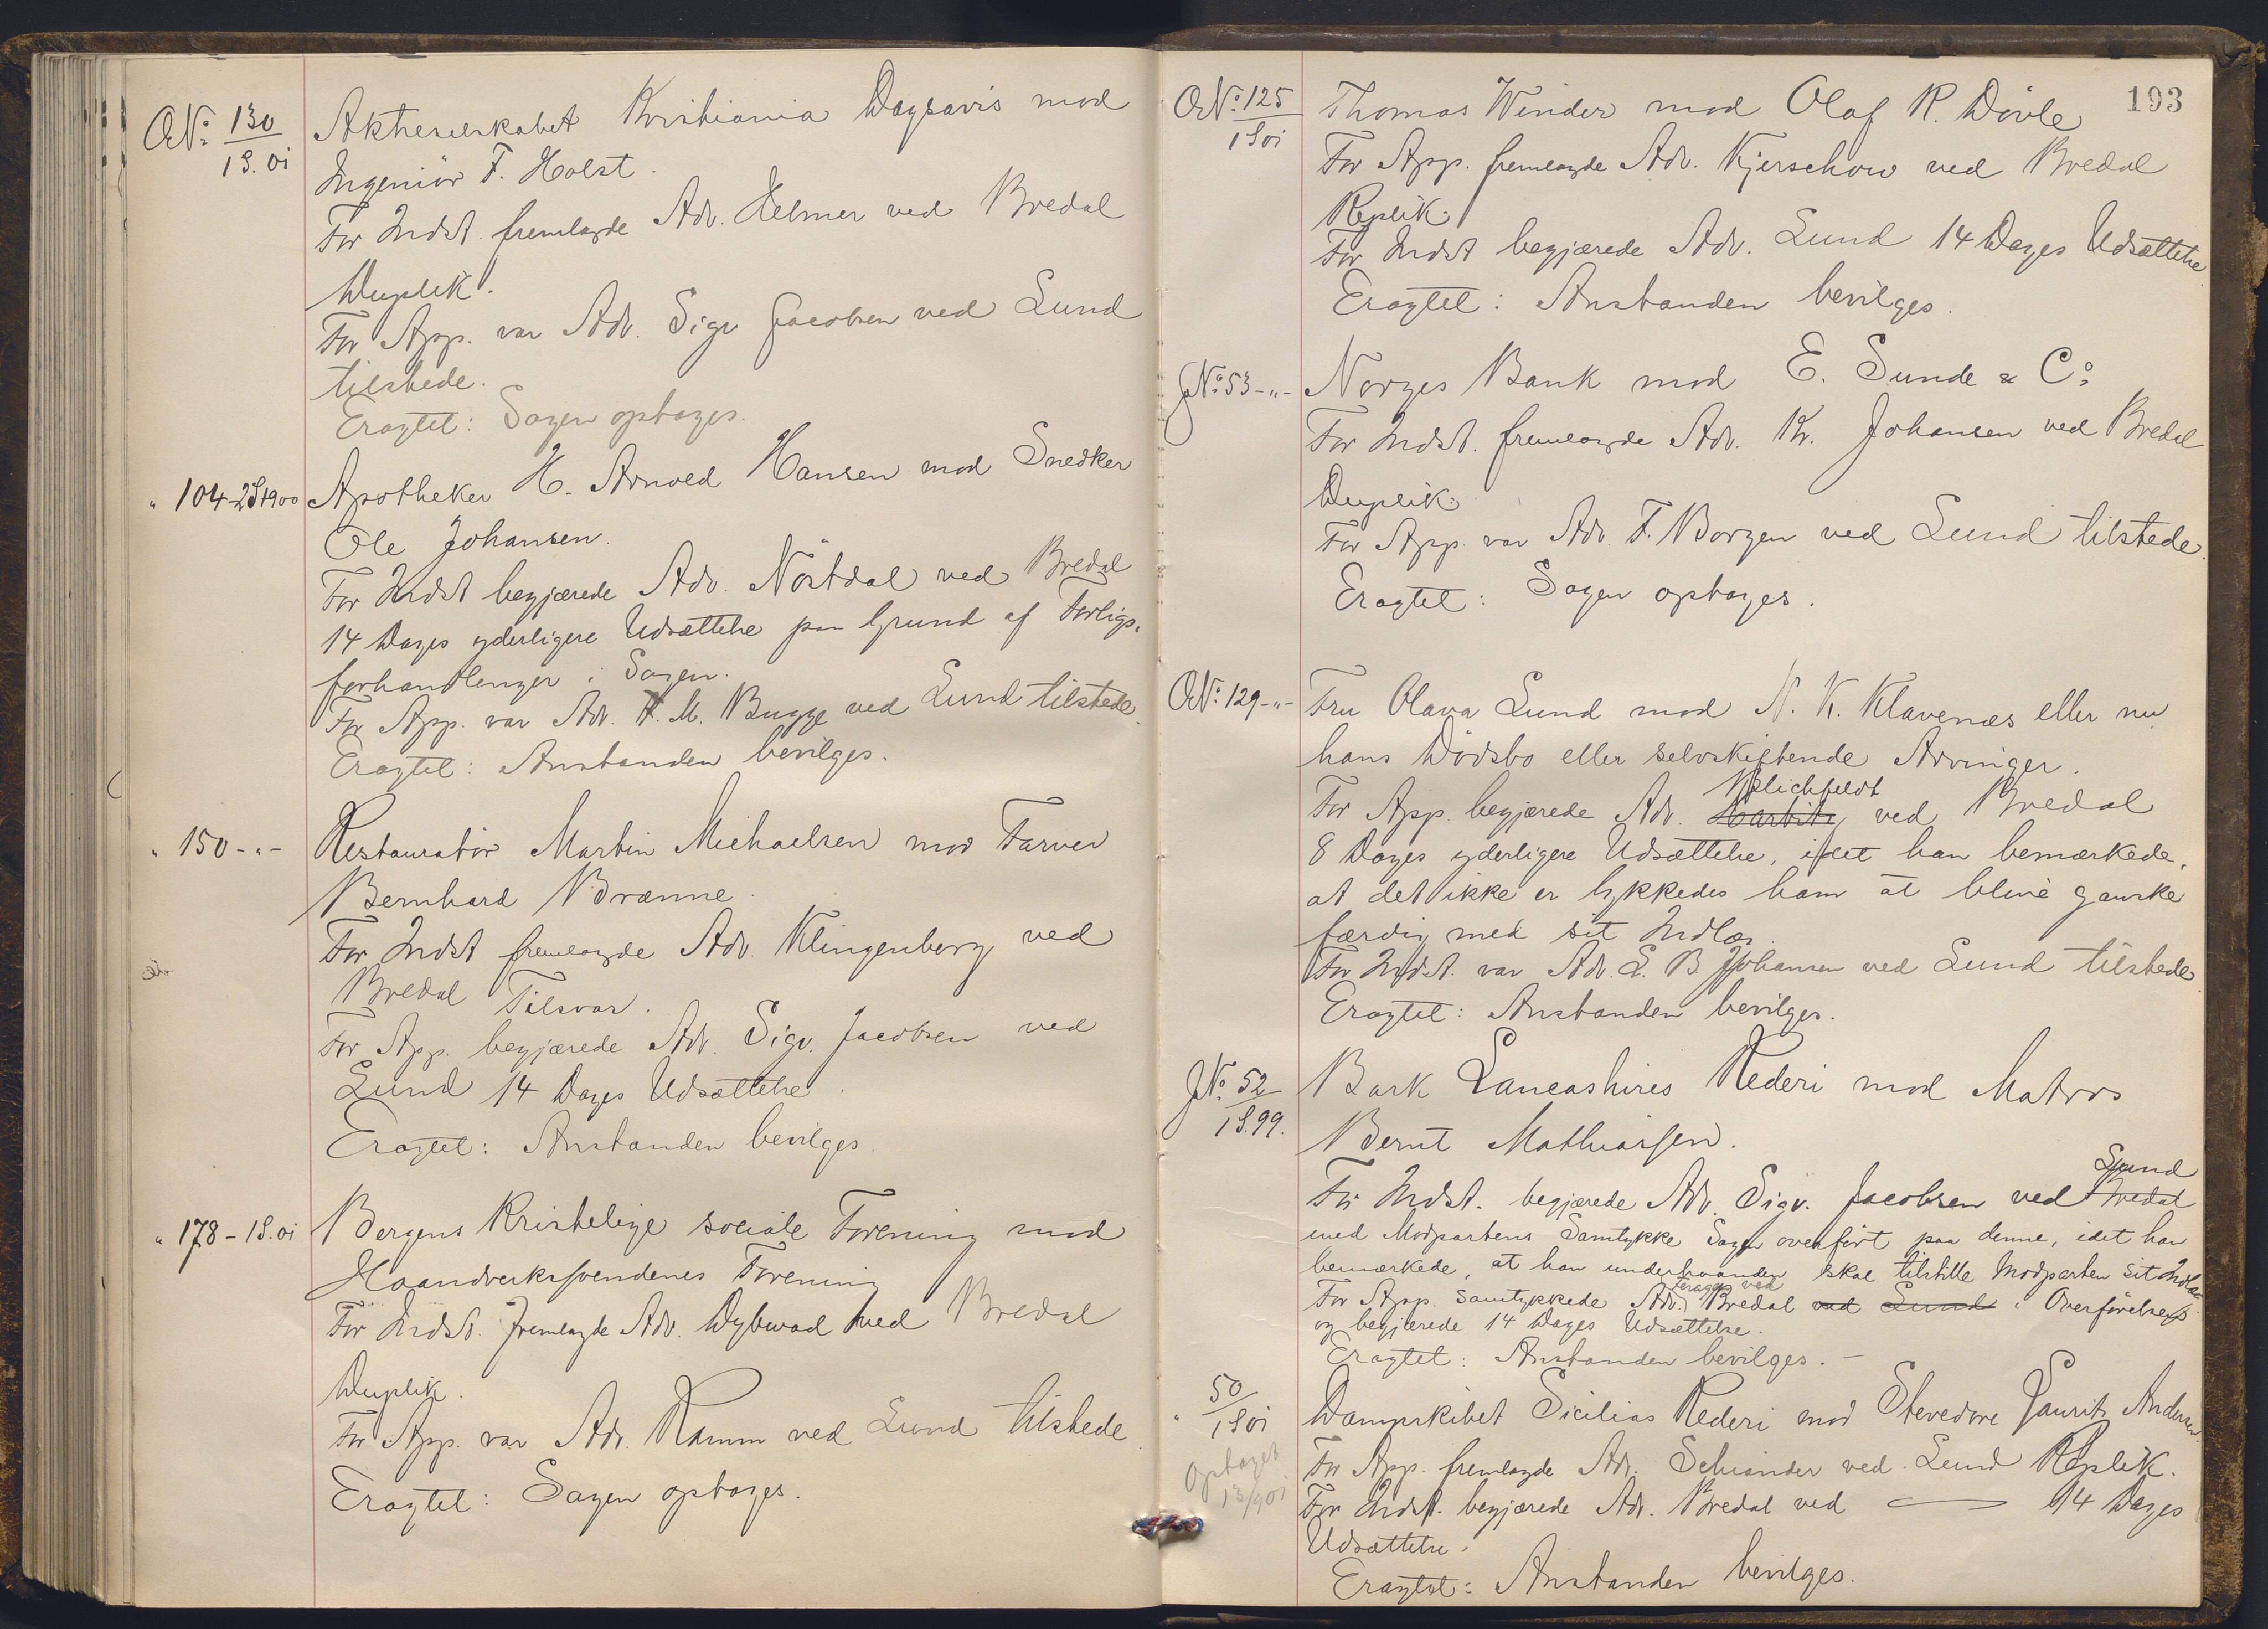 ONo. 130/1S.01
Aktieselskabet Kristiania Dagsavis mod
Ingeniör F. Holst.
For Indst. fremlagde Adv. Helmer ved Bredal
Duplik.
For App. var Adv. Sigv Jacobsen ved Lund
tilstede.
Eragtet: Sagen optages.
" 104-2S1900
Apotheker H. Arnold Hansen mod Snedker
Ole Johansen.
For Indst begjærede Adv. Nöstdal ved Bredal
14 Dages yderligere Udsættelse paa Grund af Forligs-
forhandlinger i Sagen.
For App. var Adv. F. M. Bugge ved Lund tilstede.
Eragtet: Anstanden bevilges.
" 150-"-
Restauratör Martin Michaelsen mod Farver
Bernhard Brænne.
For Indst fremlagde Adv. Klingenberg ved
Bredal Tilsvar.
For App. begjærede Adv. Sigv. Jacobsen ved
Lund 14 Dages Udsættelse.
Eragtet: Anstanden bevilges.
" 178-1S.01
Bergens Kristelige sociale Forening mod
Haandverkssvendenes Forening
For Indst. fremlagde Adv. Dybwad ved Bredal
Duplik.
For App. var Adv. Hamm ved Lund tilstede.
Eragtet: Sagen optages.
193
ONo. 125/1S01
Thomas Winder mod Olaf R. Dövle
For App. fremlagde Adv. Kjerschow ved Bredal
Replik.
For Indst begjærede Adv. Lund 14 Dages Udsættelse
Eragtet: Anstanden bevilges.
JNo. 53-"-
Norges Bank mod E. Sunde & Co.
For Indst. fremlagde Adv. Kr. Johansen ved Bredal
Duplik.
For App. var Adv. F. Borgen ved Lund tilstede.
Eragtet: Sagen optages.
ONo. 129-"-
Fru Olava Lund mod N. K. Klavenæs eller nu
hans Dödsbo eller selvskiftende Arvinger.
Blichfeldt
For App. begjærede Adv. ved Bredal
8 Dages yderligere Udsættelse, idet han bemærkede,
at det ikke er lykkedes ham at blive ganske
færdig med sit Indlæg.
For Indst. var Adv. E. B Johansen ved Lund tilstede.
Eragtet: Anstanden bevilges.
JNo. 52/1S.99.
Bark Lancashires Rederi mod Matros
Bernt Mathiassen.
Lund
For Indst. begjærede Adv. Sigv. Jacobsen ved Bredal
med Modpartens Samtykke Sagen overfört paa denne, idet han
bemærkede, at han underhaanden skal tilstille Modparten sit Indlæg
For App. samtykkede Adv. ved Bredal ved Lund i Overförelsen
og begjærede 14 Dages Udsættelse.
Eragtet: Anstanden bevilges. -
" 50/1S01
Optaget
13/9 01
Dampskibet Sicilias Rederi mod Stevedore Laurits Andersen.
For App. fremlagde Adv. Schiander ved Lund Replik.
For Indst. begjærede Adv. Bredal ved — 14 Dages
Udsættelse.
Eragtet: Anstanden bevilges.